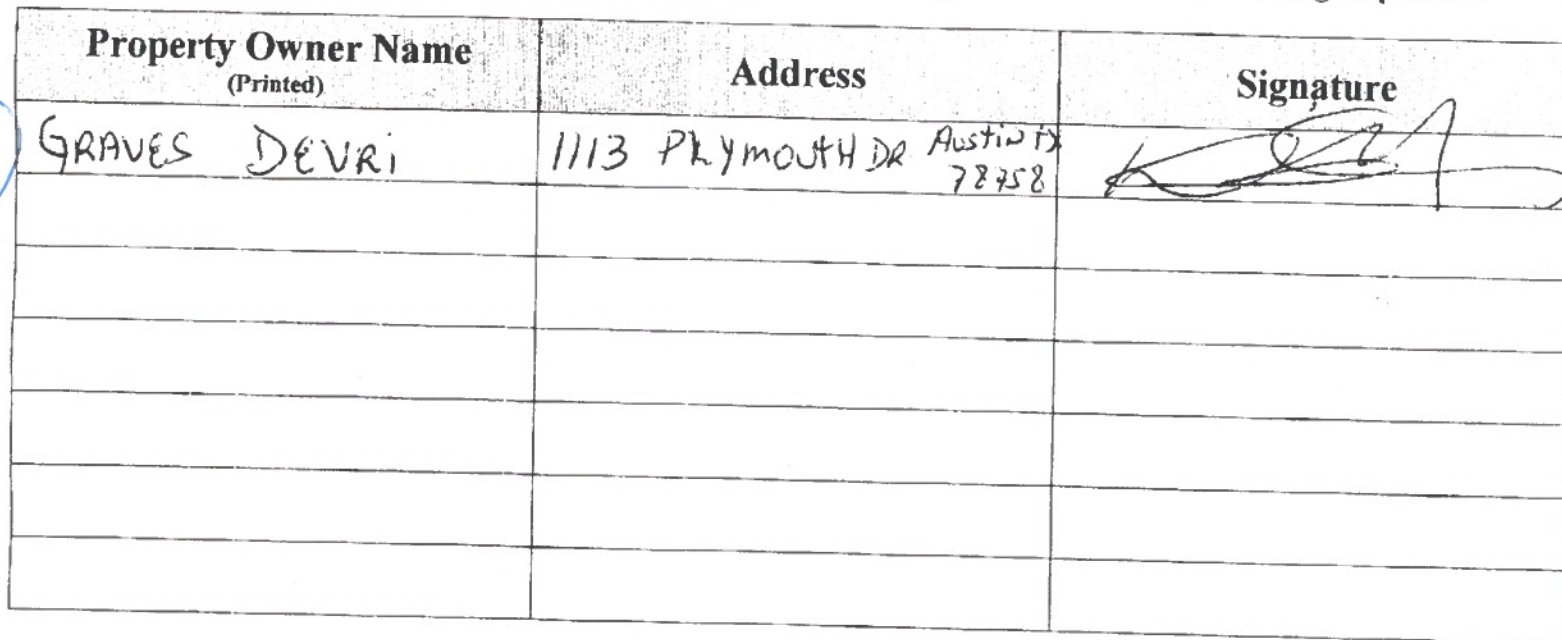 Property Owner Name
(Printed)
Address
Signature
GRAVES DEVRi
1113 PLYMOUTH DR Austin TX
78758